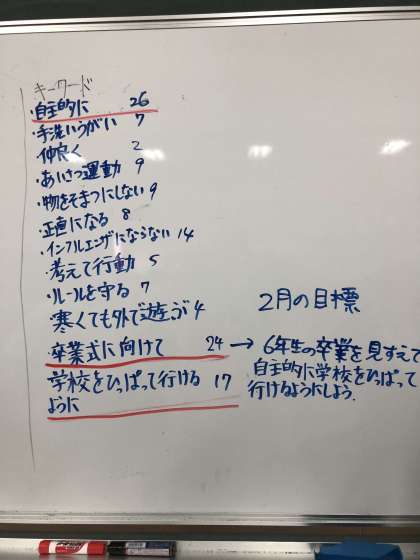 キーワード
・自主的に 26
・手洗いうがい 7
・仲良く 2
・あいさつ運動 9
・物をそまつにしない 9
・正直になる 8
・インフルエンザにならない 14
・考えて行動 5
・ルールを守る 7
・寒くても外で遊ぶ 4
・卒業式に向けて 24 →
学校をひっぱって行ける 17
ように
2月の目標
6年生の卒業を見すえて
自主的に学校をひっぱって
行けるようにしよう.